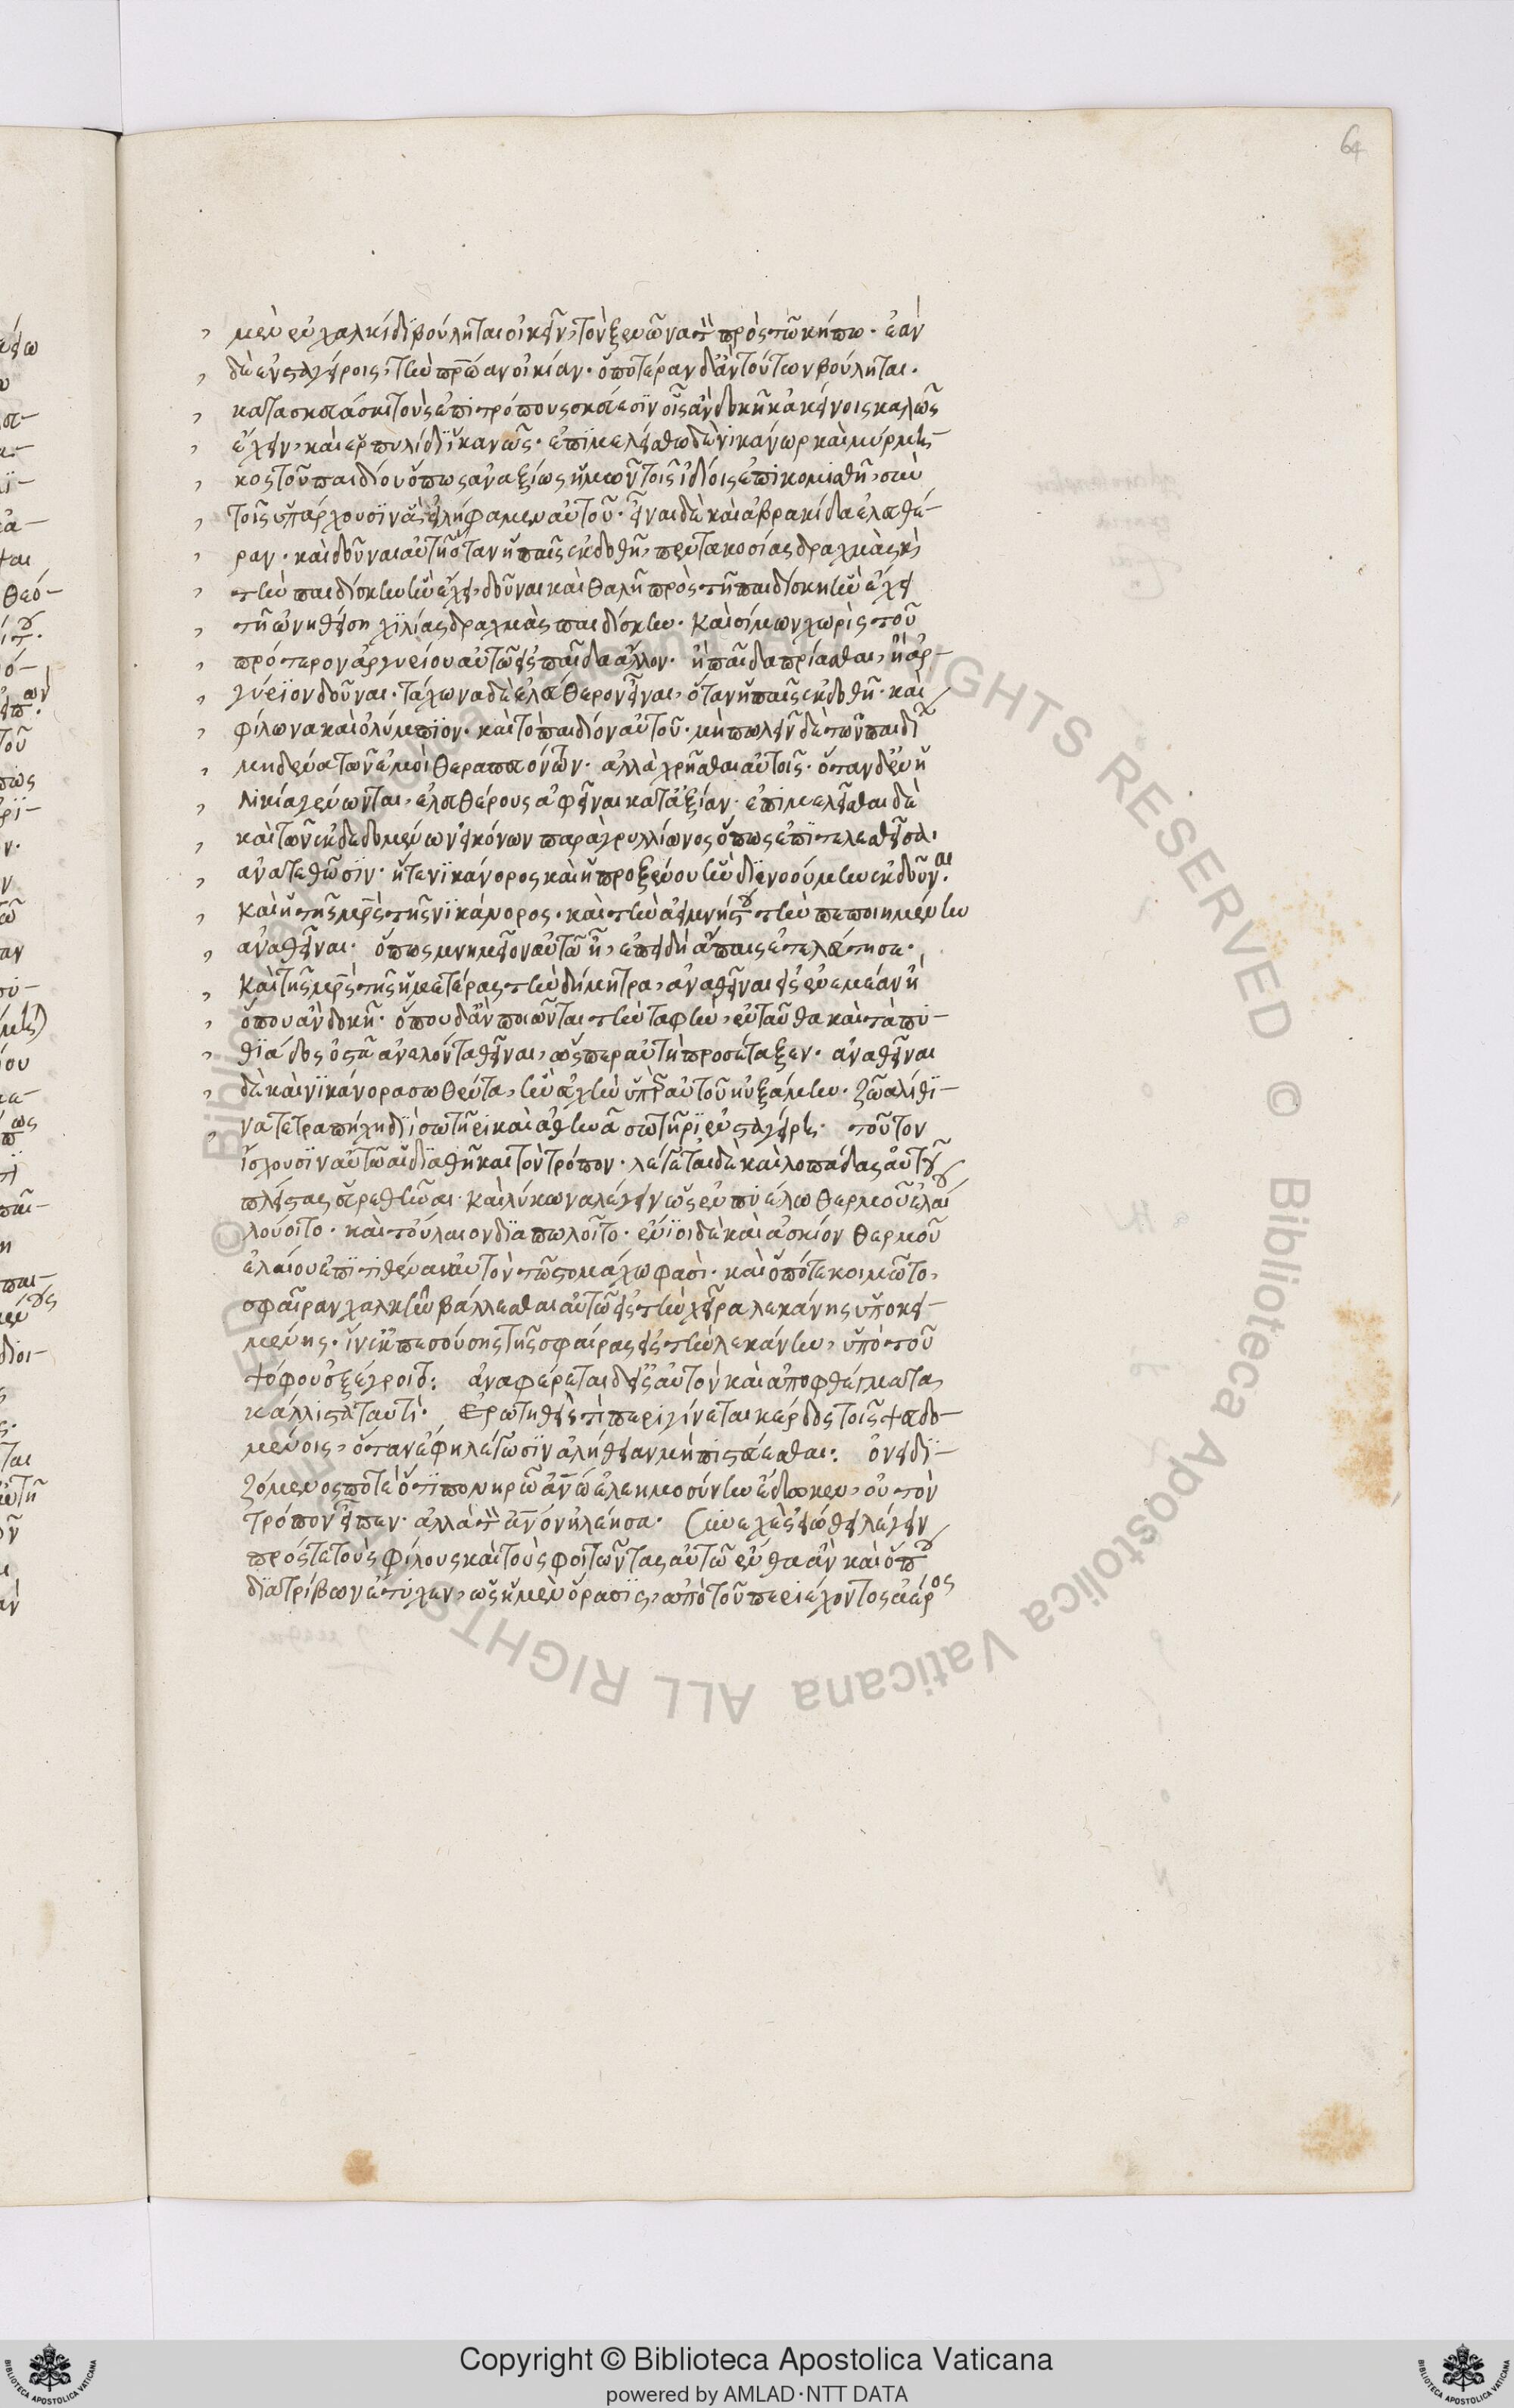 64
μὲν ἐν χαλκίδι βούληται οἰκεῖν, τὸν ξενῶνα τ̀ πρὸς τῶ κήπω· ἐὰν
δὲ ἐν σταγείροις, τὴν πρῴαν οἰκίαν· ὁποτέραν δ' ἂν τούτων βούληται·
κατασκευάσαι τοὺς ἐπιτρόπους σκεύεσιν οἷς ἂν δοκῆ κἀκείνοις καλῶς
ἔχειν, καὶ ἑρπυλίδι ἱκανῶς· ἐπιμελείσθω δὲ νικάνωρ καὶ μύρμη-
κος τοῦ παιδίου ὅπως ἀναξίως ἡμῶν τοῖς ἰδίοις ἐπικομισθῆ, σὺν
τοῖς ὑπάρχουσιν ἃ εἰλήφαμεν αὐτοῦ· εἶναι δὲ καὶ ἀβρακίδα ἐλευθέ-
ραν· καὶ δοῦναι αὐτῆ ὅταν ἡ παῖς ἐκδοθῆ, πεντακοσίας δραχμὰς κὶ
τὴν παιδίσκην ἣν ἔχει, δοῦναι καὶ θαλῆ πρὸς τῆ παιδίσκη ἣν ἔχει
τῆ ὠνηθείση χιλίας δραχμὰς παιδίσκην· καὶ σίμων χωρὶς τοῦ
πρότερον ἀργυρίου αὐτῶ εἰς παῖδα ἄλλον· ἢ παῖδα πρίασθαι, ἢ ἀρ-
γύριον δοῦναι· τάχωνα δὲ ἐλεύθερον εἶναι, ὅταν ἡ παῖς ἐκδοθῆ· καὶ
φίλωνα καὶ ὀλύμπιον· καὶ τὸ παιδίον αὐτοῦ· μὴ πωλεῖν δὲ τῶν παιδ
μηδένα τῶν ἐμοὶ θεραπευόντων· ἀλλὰ χρῆσθαι αὐτοῖς· ὅταν δ' ἐν ἡ
λικία γένωνται, ἐλευθέρους ἀφεῖναι κατ' ἀξίαν· ἐπιμελεῖσθαι δὲ
καὶ τῶν ἐκδεδομένων εἰκόνων παρὰ γρυλλίωνος ὅπως ἐπιτελεσθεῖσαι
ἀνατεθῶσιν· ἥ τε νικάνορος καὶ ἡ προξένου ἣν διενοούμην ἐκδοῦναι
καὶ ἡ τῆς μρ̅ς τῆς νικάνορος· καὶ τὴν ἀειμνήστου τὴν πεποιημένην
ἀναθεῖναι· ὅπως μνημεῖον αὐτῶ ἦ, ἐπειδὴ ἄπαις ἐτελεύτησε·
καὶ τῆς μρ̅ς τῆς ἡμετέρας τὴν δήμητρα, ἀναθεῖναι εἰς νεμέαν ἢ
ὅπου ἂν δοκῆ· ὅπου δ' ἂν ποιῶνται τὴν ταφὴν, ἐνταῦθα καὶ τὰ πυ-
θιάδος ὀστᾶ ἀνελόντα θεῖναι, ὥσπερ αὐτὴ προσέταξεν· ἀναθεῖναι
δὲ καὶ νικάνορα σωθέντα, ἣν εὐχὴν ὑπὲρ αὐτοῦ ηὐξάμην· ζῶα λίθι-
να τετραπήχη διὶ σωτῆρι καὶ ἀθηνᾶ σωτήρι ἐν σταγείρις· τοῦτον
ἴσχουσιν αὐτῶ αἱ διαθῆκαι τὸν τρόπον· λέγεται δὲ καὶ λοπάδας αὐτοῦ
πλείστας εὑρεθῆναι· καὶ λύκωνα λέγειν ὡς ἐν πυέλω θερμοῦ ἐλαί
λούοιτο· καὶ τοὔλαιον διαπωλοῖτο· ἔνιοι δὲ καὶ ἀσκίον θερμοῦ
ἐλαίου ἐπιτιθέναι αὐτὸν τῶ στομάχω φασὶ· καὶ ὁπότε κοιμῶτο,
σφαῖραν χαλκῆν βάλλεσθαι αὐτῶ εἰς τὴν χεῖρα λεκάνης ὑποκει-
μένης· ἵν' ἐκπεσούσης τῆς σφαίρας εἰς τὴν λεκάνην, ὑπὸ τοῦ
ψόφου ἐξέγροιτο: ἀναφέρεται δ' εἰς αὐτὸν καὶ ἀποφθέγματα
κάλλιστα ταυτί· ἐρωτηθεὶς τί περιγίνεται κέρδος τοῖς ψευδο-
μένοις, ὅταν ἔφη λέγωσιν ἀλήθειαν μὴ πιστεύεσθαι: ὀνειδι-
ζόμενός ποτε ὅτι πονηρῶ ἀν̅ω ἐλεημοσύνην ἔδωκεν, οὐ τὸν
τρόπον εἶπεν· ἀλλὰ τ̀ ἀν̅ον ἠλέησα· συνεχὲς εἰώθει λέγειν
πρός τε τοὺς φίλους καὶ τοὺς φοιτῶντας αὐτῶ ἔνθα ἂν καὶ ὅπου
διατρίβων ἔτυχεν, ὡς ἡ μὲν ὅρασις, ἀπὸ τοῦ περιέχοντος ἀέρος
© Biblioteca Apostolica Vaticana ALL RIGHTS RESERVED
Copyright © Biblioteca Apostolica Vaticana
powered by AMLAD·NTT DATA